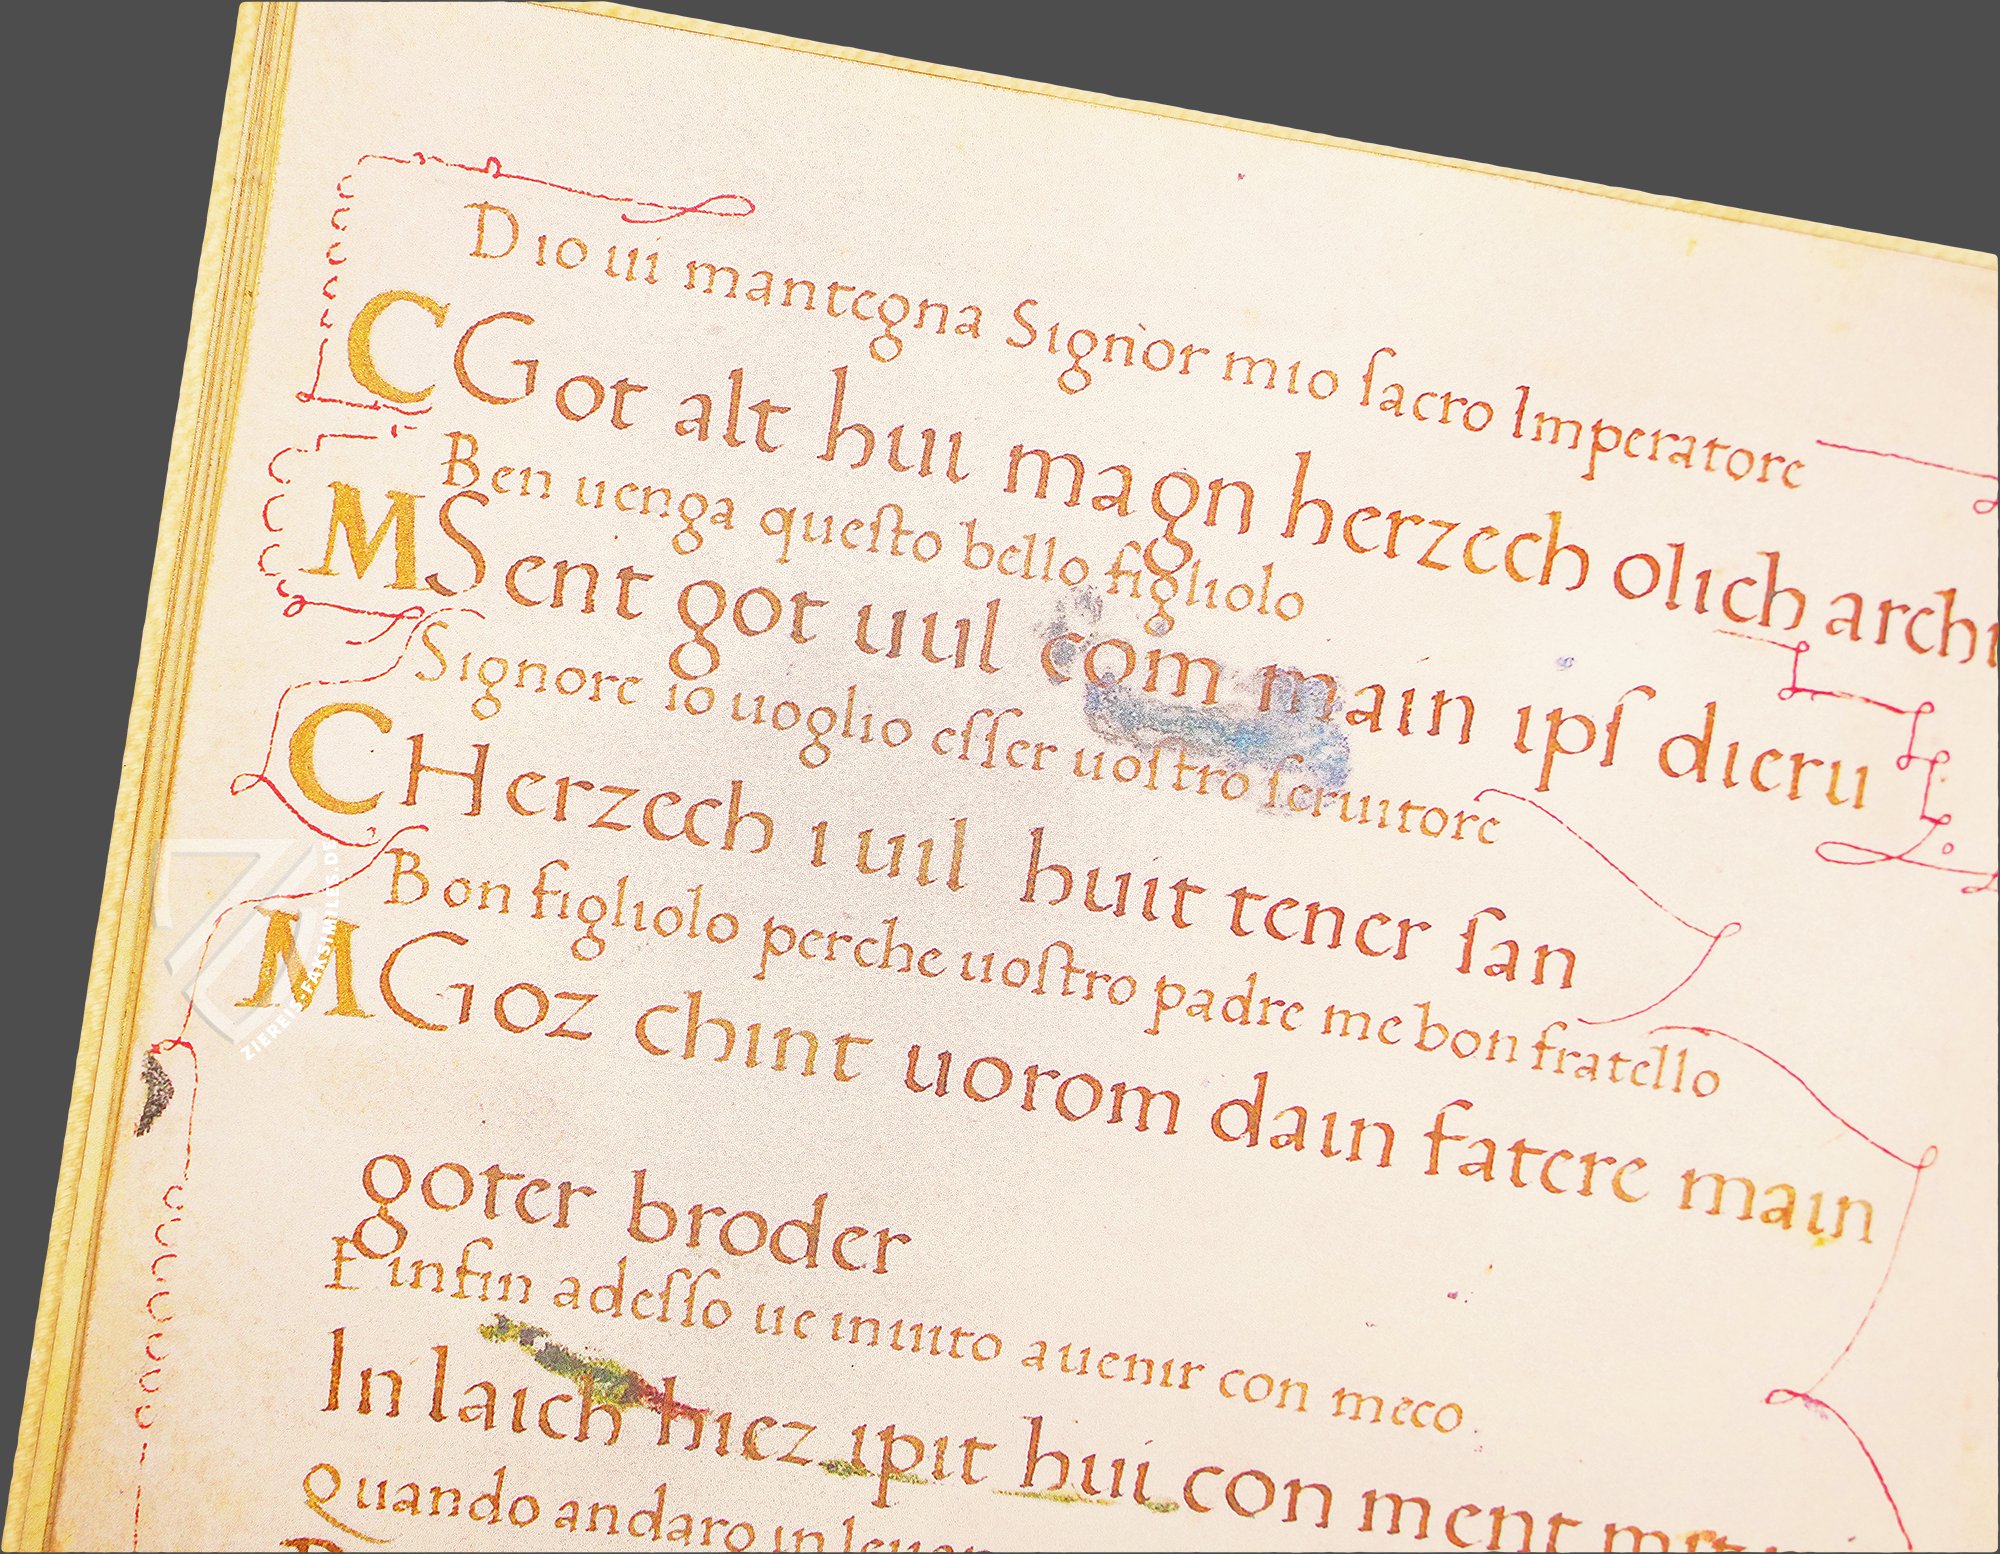 Dio ui mantegna Signor mio ſacro Imperatore
C Got alt huı magn herzech olich archi
Ben uenga queſto bello figliolo
M Sent got uuil com main ipſ dieru
Signore io uoglio eſſer uoſtro ſeruitore
C Herzech i uuil huit tener ſan
Bon figliolo perche uoſtro padre me bon fratello
M Goz chint uorom dain fatere main
goter broder
Einfin adeſſo ue inuito auenir con meco.
In laich hiez ipit hui con ment
Quando andaro in
ZIEREIS-FAKSIMILES.DE